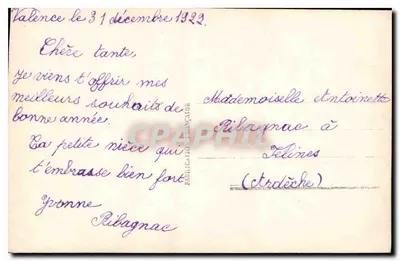 Valence le 31 décembre 1922.
Chère tante,
Je viens t'offrir mes
meilleurs souhaits de
bonne année.
Ta petite nièce qui
t'embrasse bien fort
Yvonne
Ribagnac
Mademoiselle Antoinette
Ribagnac à
Félines
(Ardèche)
CPAPHIL